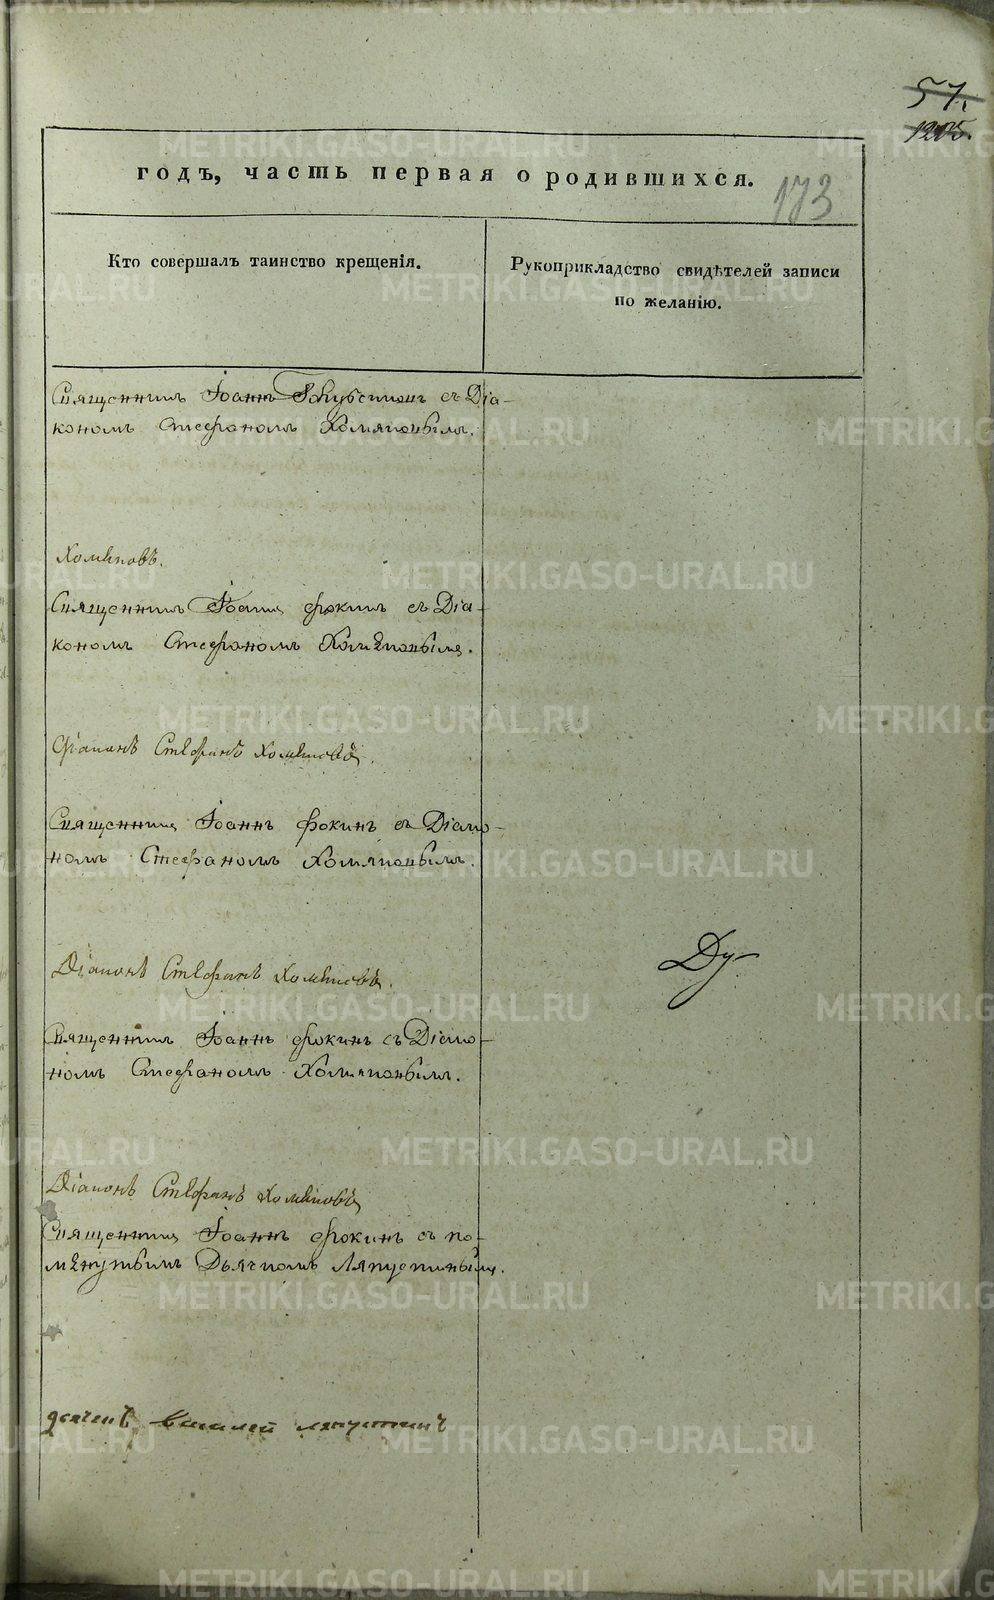 57.
1205.
годъ, часть первая о родившихся.
173
Кто совершалъ таинство крещенія.
Рукоприкладство свидѣтелей записи
по желанію.
Священникъ Іоаннъ съ Діа-
кономъ Стефаномъ Хомяковымъ.
Хомяковъ.
Священникъ Іоаннъ Фокинъ съ Діа-
кономъ Стефаномъ Хомяковымъ.
Діаконъ Стефанъ Хомяковъ.
Священникъ Іоаннъ Фокинъ съ Діако-
номъ Стефаномъ Хомяковымъ.
Діаконъ Стефанъ Хомяковъ.
Ду
Священникъ Іоаннъ Фокинъ съ Діако-
номъ Стефаномъ Хомяковымъ.
Діаконъ Стефанъ Хомяковъ
Священникъ Іоаннъ Фокинъ съ по-
мянутымъ Дьячкомъ Ляпустинымъ.
дьячекъ Василей Ляпустинъ
METRIKI.GASO-URAL.RU